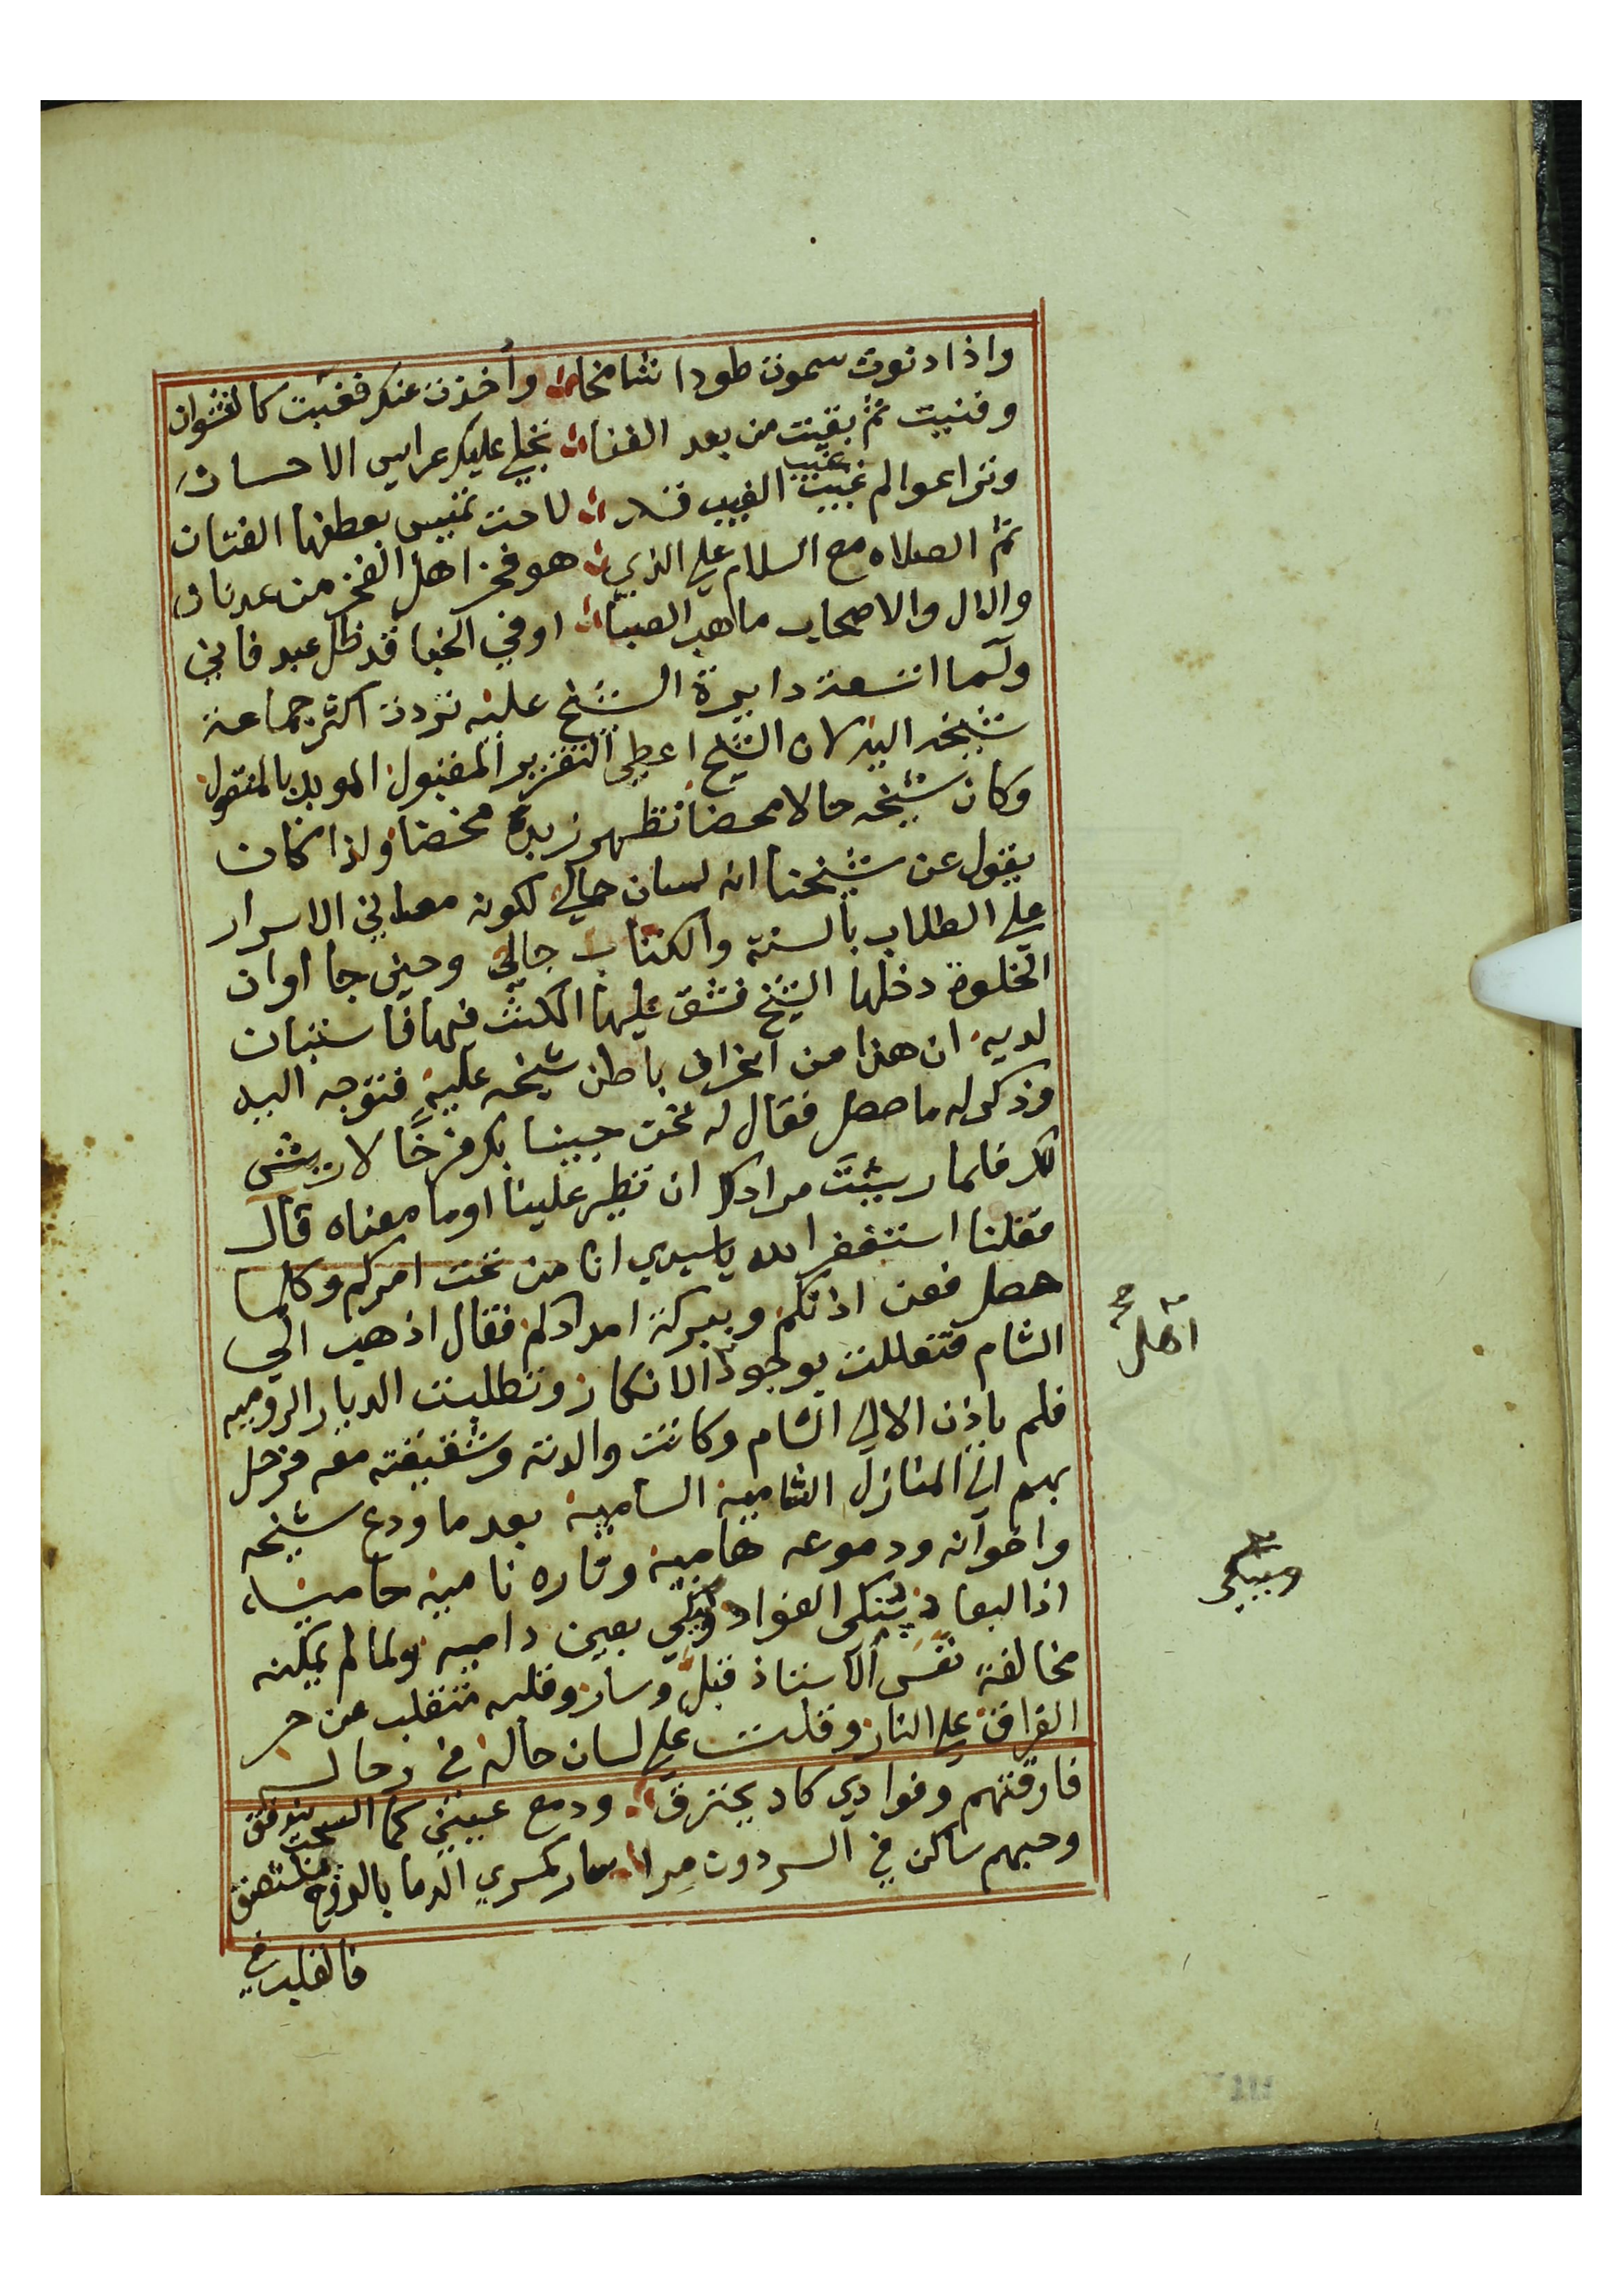 واذا دنوت سموت طودا شامخا واخذت عنك فغبت كالنشوان
وفنيت ثم بقيت من بعد الفنا تجلي عليك عرايس الاحسان
وترا عوالم غيب غيب الغيب قد لاحت تميس بعطفها الفتان
ثم الصلاه مع السلام علي الذي هو فخر اهل الفخر من عدنان
والال والاصحاب ما هب الصبا او في الخبا قد ظل عبد فاني
ولما اتسعت دايرة الشيخ عليه تردت اكثر جماعة
شيخه اليه لان الشيخ اعطي التقرير المقبول المويد بالمنقول
وكان شيخه حالا محضا تظهر زبدة مخضا ولذا كان
يقول عن شيخنا انه لسان حالي لكونه معاني الاسرار
علي الطلاب بالسنة والكتاب جالي وحين جا اوان
الخلوة دخلها الشيخ فشق عليها المكث فيها فاستبان
لديه ان هذا من انحراف باطن شيخه عليه فتوجه اليه
وذكر له ما حصل فقال له نحن جبينا بك فرخا لا ريش
لك فلما ريشت مرادك ان تطير علينا او ما معناه قال
فقلنا استغفر الله ياسيدي انا من تحت امركم وكلما
حصل فعن اذنكم وببركة امدادكم فقال اذهب الي
الشام فتعللت بوجود الانكار وتطلبت الديار الروميه
اهل صح
فلم ياذن الا الي الشام وكانت والدته وشقيقته معه فرحل
بهم الي المنازل الشامية السامية بعد ما ودع شيخه
واخوانه ودموعه هامية وناره نامية حامية
اذ البعاد ينكي الفواد ويبكي بعين داميه ولما لم يمكنه
ويبكي
مخالفة نفس الاستاذ قبل وسار وقلبه متقلب من حر
الفراق علي النار وقلت علي لسان حاله في رحاله
فارقتهم وفوادي كاد يحترق ودمع عيني كما السحب يندفق
وحبهم ساكن في السر دون مرا سار كسري الدما بالروح ملتصق
فالقلب في